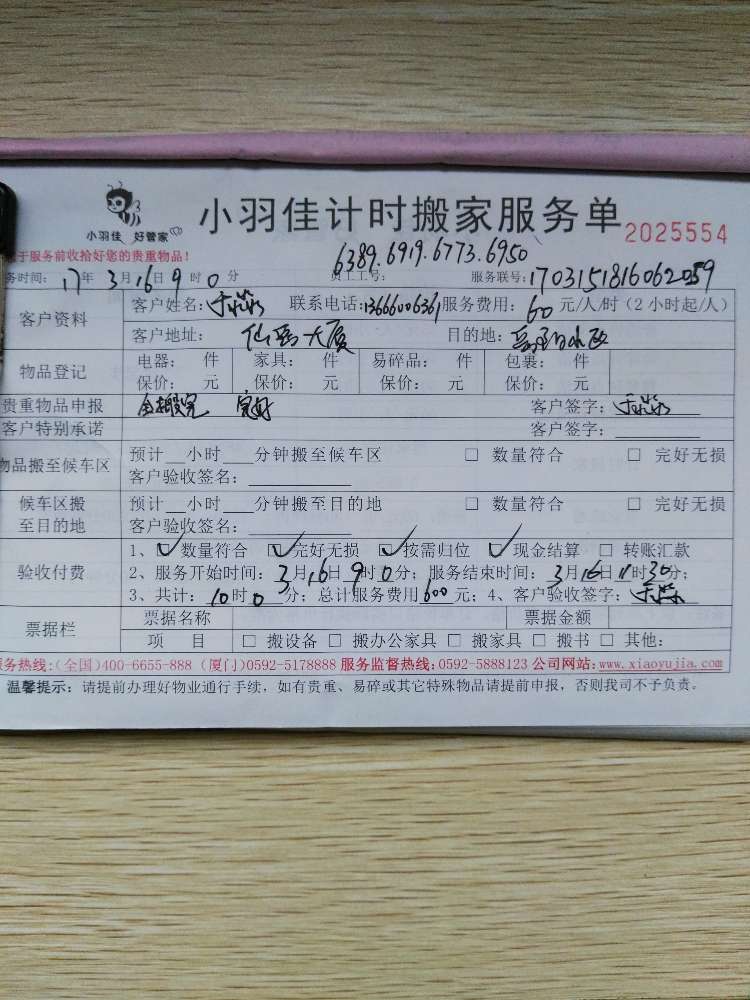 小羽佳 好管家
小羽佳计时搬家服务单 2025554
于服务前收拾好您的贵重物品!
6389.6919.6773.6950
务时间: 17年 3月16日9时0分 员工工号: 服务联号: 1703151816062059
客户资料 客户姓名: 联系电话:13666006361 服务费用: 60 元/人/时(2小时起/人)
客户地址: 大厦 目的地:
物品登记 电器: 件 家具: 件 易碎品: 件 包裹: 件
保价: 元 保价: 元 保价: 元 保价: 元
贵重物品申报 全搬完 完好 客户签字:
客户特别承诺 客户签字:
物品搬至候车区 预计__小时___分钟搬至候车区 □ 数量符合 □ 完好无损
客户验收签名:
候车区搬至目的地 预计__小时___分钟搬至目的地 □ 数量符合 □ 完好无损
客户验收签名:
验收付费 1、☑数量符合 ☑完好无损 ☑按需归位 ☑现金结算 □ 转账汇款
2、服务开始时间: 3月16日9时0分; 服务结束时间: 3月16日11时30分;
3、共计: 10时0分; 总计服务费用600元; 4、客户验收签字:
票据栏 票据名称 票据金额
项 目 □ 搬设备 □ 搬办公家具 □ 搬家具 □ 搬书 □ 其他:
服务热线:(全国)400-6655-888 (厦门)0592-5178888 服务监督热线:0592-5888123 公司网站:www.xiaoyujia.com
温馨提示: 请提前办理好物业通行手续,如有贵重、易碎或其它特殊物品请提前申报,否则我司不予负责。